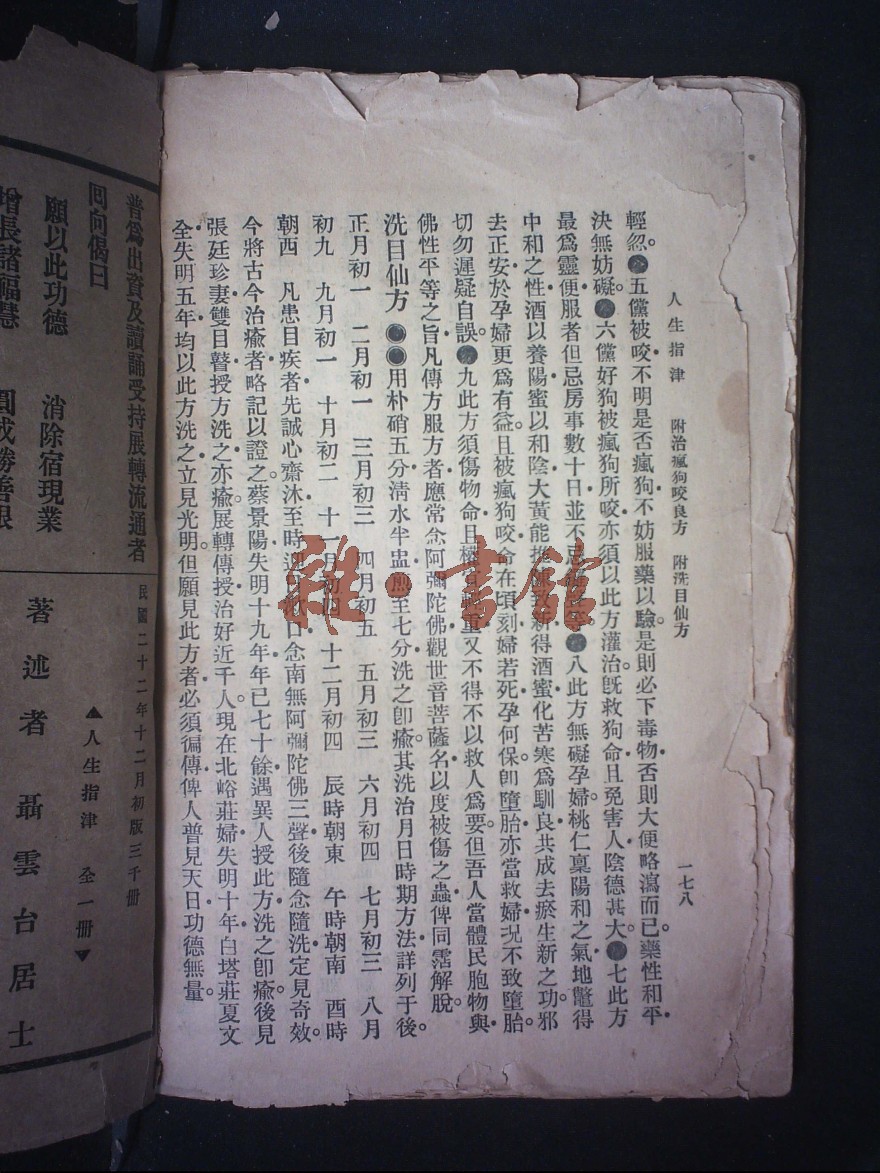 人生指津 附治瘋狗咬良方 附洗目仙方 一七八
輕忽。五儻被咬不明是否瘋狗不妨服藥以驗是則必下毒物否則大便略瀉而已。藥性和平
決無妨礙。六儻好狗被瘋狗所咬亦須以此方灌治。旣救狗命且免害人陰德甚大。七此方
最爲靈便服者但忌房事數十日並不忌。八此方無礙孕婦。桃仁稟陽和之氣地鼈得
中和之性酒以養陽蜜以和陰大黃能推陳致新得酒蜜化苦寒爲馴良共成去瘀生新之功邪
去正安於孕婦更爲有益。且被瘋狗咬命在頃刻婦若死孕何保。卽墮胎亦當救婦况不致墮胎。
切勿遲疑自誤。九此方須傷物命且權重又不得不以救人爲要但吾人當體民胞物與
佛性平等之旨凡傳方服方者應常念阿彌陀佛觀世音菩薩名以度被傷之蟲俾同霑解脫。
洗目仙方 用朴硝五分淸水半盅煎至七分洗之卽瘉其洗治月日時期方法詳列于後。
正月初一 二月初一 三月初三 四月初五 五月初三 六月初四 七月初三 八月
初九 九月初一 十月初二 十一月初四 十二月初四 辰時朝東 午時朝南 酉時
朝西 凡患目疾者先誠心齋沐至時迎漱口念南無阿彌陀佛三聲後隨念隨洗定見奇效。
今將古今治瘉者略記以證之。蔡景陽失明十九年年已七十餘遇異人授此方洗之卽瘉後見
張廷珍妻雙目瞽授方洗之亦瘉展轉傳授治好近千人。現在北峪莊婦失明十年白塔莊夏文
全失明五年均以此方洗之立見光明。但願見此方者必須徧傳俾人普見天日功德無量。
雜·書館
普爲出資及讀誦受持展轉流通者
回向偈曰
願以此功德 消除宿現業
增長諸福慧 圓成勝善根
民國二十二年十二月初版三千册
▲人生指津 全一册▼
著述者 聶雲台居士